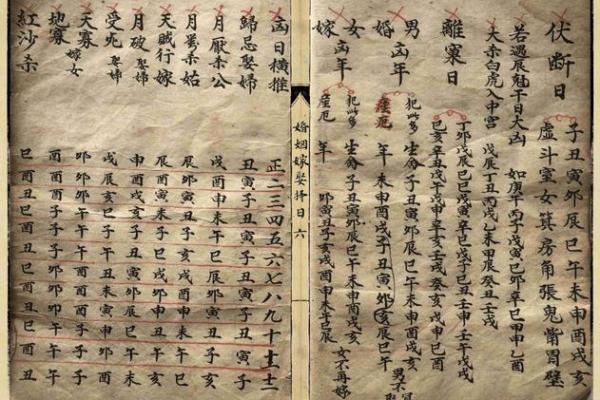 伏断日 子丑寅卯辰巳午未申酉戌亥
虚斗室女箕房角張鬼觜胃壁
若遇辰魁干日大凶 如庚午丙子戊寅己卯辛巳甲申乙酉
大杀白虎入中宫 戊辰丁丑丙戌乙未甲辰癸丑壬戌
離窠日 丁卯戊辰己巳戊寅辛巳戊子己丑壬申壬午戊戌
己亥辛丑戊午戊申辛亥壬戌癸亥
男凶年 犯此多 生命子丑寅卯辰巳午未申酉戌亥
婚 產厄 年 未申酉戌子丑寅卯亥辰巳午 男不
女凶年 犯此多 生命子丑寅卯辰巳午未申酉戌亥
嫁 產厄 年 卯寅丑子亥戌酉申未午巳辰 女不再嫁
婚姻嫁娶择日 六
凶日横推 正二三四五六七八九十十一十二
歸忌娶婦 丑寅子丑寅子丑寅子丑寅子
月厭未公 戌酉申未午巳辰卯寅丑子亥
月杀姑
天賊行嫁 辰酉寅未子巳戌卯申丑午亥
月破娶婦 申酉戌亥子丑寅卯辰巳午未
受死娶婦 戌辰亥巳子午丑未寅申卯酉
天寡嫁女 卯卯卯子子子酉酉酉午午午
地寡 酉酉酉子子子卯卯卯午午午
紅沙杀 巳酉丑巳酉丑巳酉丑巳酉丑